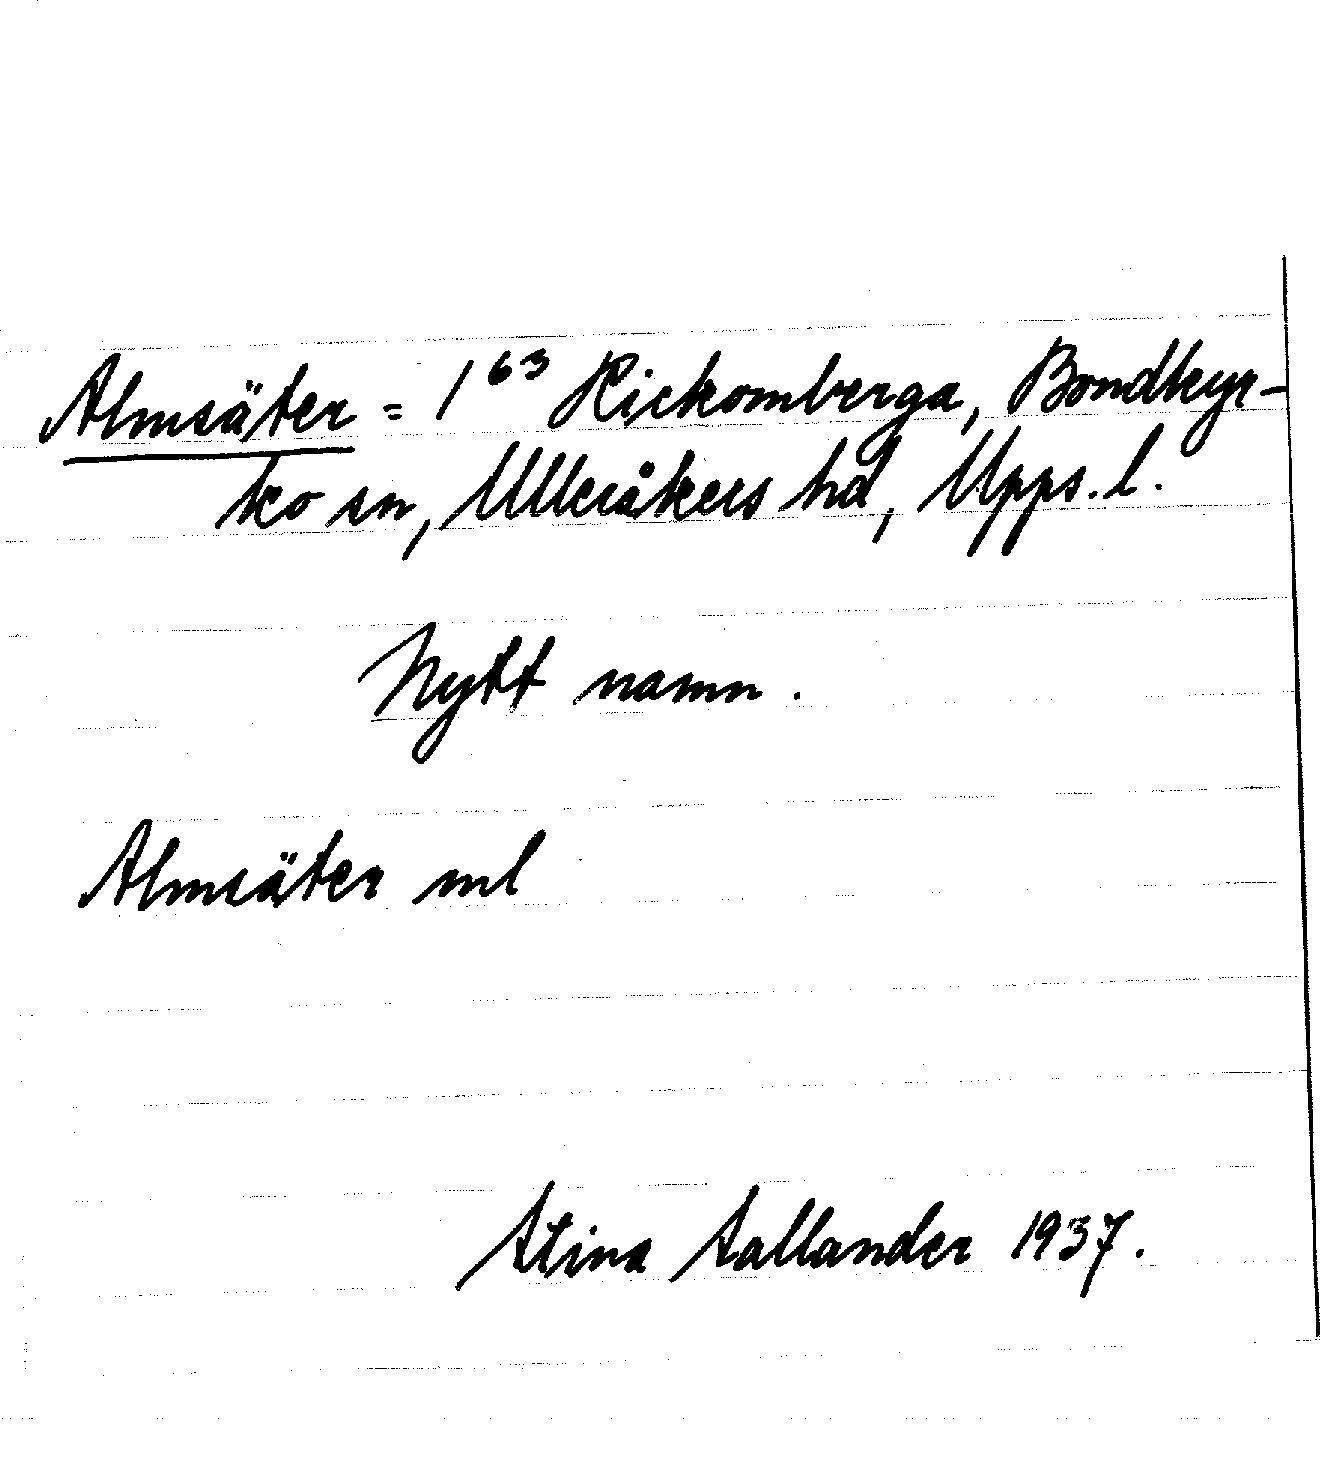 Almsäter = 1 63 Kickomberga, Bondkyr-
ko sn, Ulleråkers hd, Upps. l.
Nytt namn.
Almsäter ml
Stina Sallander 1937.